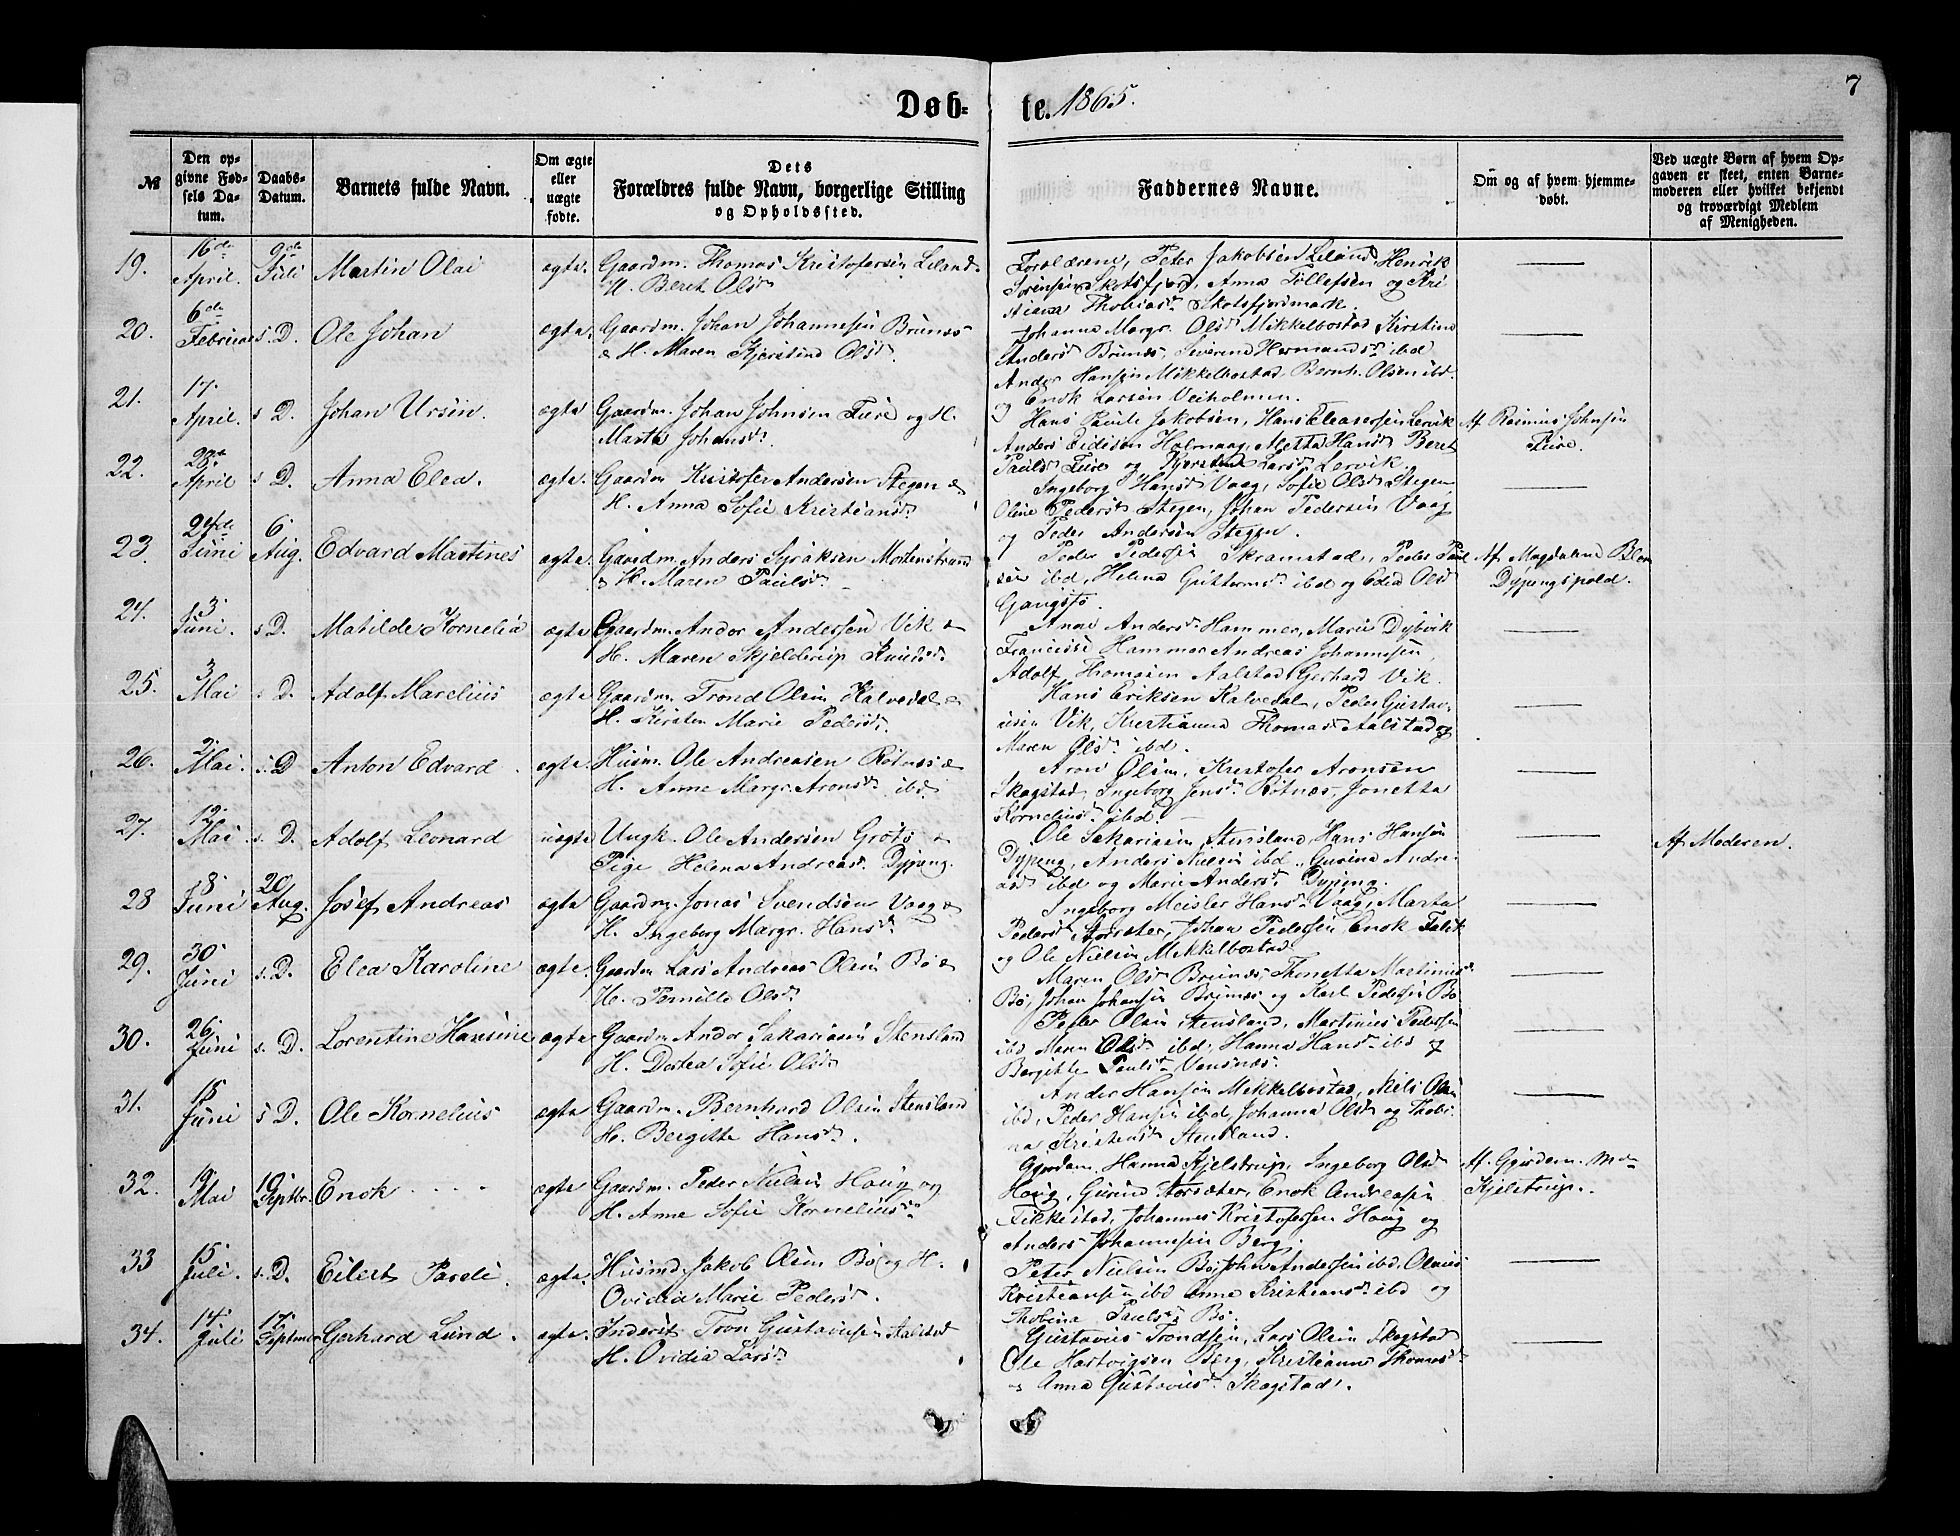 7
Døb-
te. 1865.
№
Den op-
givne Fød-
sels Da-
tum.
Daabs-
Datum.
Barnets fulde Navn.
Om ægte
eller
uægte
fødte.
Dets
Forældres fulde Navn, borgerlige Stilling
og Opholdssted.
Faddernes Navne.
Om og af hvem hjemme-
døbt.
Ved uægte Børn af hvem Op-
gaven er skeet, enten Barne-
moderen eller hvilket bekjendt
og troværdigt Medlem
af Menigheden.
19. 16de April. 9de Juli Martin Olai ægte. Gaardm. Thomas Kristofersen Leland
H. Beret Olsd.
Forældrene, Peter Jakobsen Leland, Henrik
Sørensen Skotsfjord, Anna Tollefsen og Kri
Thobiasd. Skotsfjordmark.
20. 6de Februar s. D. Ole Johan ægte. Gaardm. Johan Johannesen Brunæs
& H. Maren Kjerstine Olsd.
Johanna Margr. Olsd. Mikkelbostad, Kirstine
Andersd. Brunæs, Severine Hermansd. ibd
Ander Hansen Mikkelbostad, Bernh. Olsen ibd.
og Enok Larsen Veiholmen.
21. 17. April. s D. Johan Ursin. ægte Gaardm. Johan Johnsen Fure og H.
Marta Johansd.
Hans Paule Jakobsen, Hans Eleasersen Lervik
Anders Eidisen Holmaag, Metta Hansd. Beret
Paulsd Fure og Kjersten Larsd. Lervik.
Af Rasmus Johnsen
Fure.
22. 28de April s D. Anna Elea. ægte. Gaardm Kristofer Andersen Stegen &
H. Anna Sofie Kristiansd.
Ingeborg Hansd. Vaag, Sofie Olsd. Stegen,
Oline Pedersd. Stegen, Johan Pedersen Vaag
og Peder Andersen Stegen.
23. 24de Juni 6 Aug. Edvard Martines ægte. Gaardm. Anders Syraksen Mortenstrand
& H. Maren Paulsd.
Peder Pedersen Skramstad, Peder Paul
sen ibd, Helena Guttormsd. ibd og Edea Olsd
Gangsø.
Af Magdalena Blom
Dypingspold.
24. 3. Juni. s D. Matilde Kornelia ægte Gaardm. Andor Andersen Vik &
H. Maren Skjelderup Knudsd.
Anne Andersd. Hammer, Marie Dybvik
Hammer Andreas Johannesen,
Adolf Thomasen Aalstad, Gerhard Vik.
25. 3 Mai s D. Adolf Marelius ægte Gaardm. Trond Olsen Kalvedal &
H. Kirsten Marie Pedersd.
Hans Eriksen Kalvedal, Peder Gustav-
usen Vik, Kristianna Thomasd. Aalstad og
Maren Olsd. ibd.
26. 2. Mai. s. D Anton Edvard ægte. Husm. Ole Andreasen Rotnæs &
H. Anne Margr. Aronsd. ibd
Aron Olsen, Kristofer Aronsen
Skagstad, Ingeborg Jensd. Rotnæs, Jonetta
Korneliusd. ibd.
27. 12. Mai s. D. Adolf Leonard uægte Ungk. Ole Andersen Grøtø &
Pige Helena Andreasd. Dyping.
Ole Sakariasen Stensland, Hans Hansen
Dyping, Anders Nielsen ibd., Gurina Andre-
asd ibd og Marie Andersd. Dyping.
Af Moderen.
28 8. Juni 20 Aug. Josef Andreas ægte Gaardm. Jonas Svendsen Vaag &
H. Ingeborg Margr. Hansd.
Ingeborg Meisler Hansd. Vaag, Marta
Pedersd. Storsæter, Johan Pedersen Enok Falik
og Ole Nielsen Mikkelbostad
29. 30 Juni s. D. Elea Karoline ægte. Gaardm Lars Andreas Olsen Bø &
H. Pernille Olsd.
Maren Olsd. Brunæs, Thonetta Martinusd.
Bø, Johan Johansen Brunæs og Karl Pedersen Bø
30. 26. Juni s. D. Lorentine Hansine ægte Gaardm Andor Sakariasen Stensland
H. Dortea Sofie Olsd.
Peter Olsen Stensland, Martinus Pedersen
ibd Maren Olsd. ibd, Hanna Hansd. ibd og
Bergitte Paulsd. Vensnæs.
31. Juni s D. Ole Kornelius ægte Gaardm. Bernhard Olsen Stensland
H. Bergitte Hansd.
Ander Hansen Mikkelbostad, Niels Olsen
ibd, Peder Hansen ibd, Johanna Olsd og Thobi-
na Kristensd. Stensland.
32. 19 Mai 10 Septbr. Enok ægte Gaardm. Peder Nielsen Haug og
H. Anne Sofie Korneliusd.
Gjordem. Hanna Kjelstrup, Ingeborg Olsd
Haug, Gurine Storsæter, Enok Andreasen
Fikkestad, Johannes Kristofersen Haug og
Anders Johannesen Berg.
Af Gjordem. M.
Kjelstrup.
33 15 Juli. s. D. Eilert Pareli. ægte. Husmd. Jakob Olsen Bø og H.
Ovidia Marie Pedersd.
Peter Nielsen Bø, John Andersen ibd. Olaus
Kristiansen ibd Anne Kristiansd. ibd og
Thobina Paulsd. Bø.
34. 14. Juli 17. Septmr Gerhard Lund. ægte. Inderst Tron Gustavusen Aalstad
H. Ovidia Larsd.
Gustavus Trondsen, Lars Olsen Skagstad
Ole Hartvigsen Berg, Kristianne Thomasd.
& Anna Gustavusd. Skagstad.